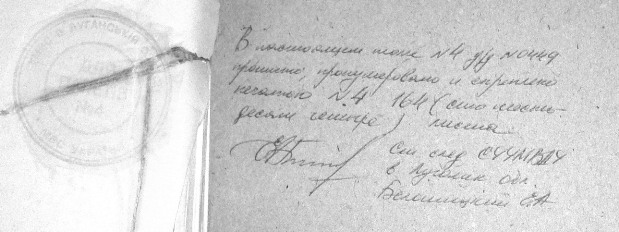 В настоящем томе N4 у/д N0449
прошито, пронумеровано и скреплено
печатью N4 164 (сто шесть-
десят четыре) листа
Ст след СУУМВД
в Луганск обл.
Белошицкий